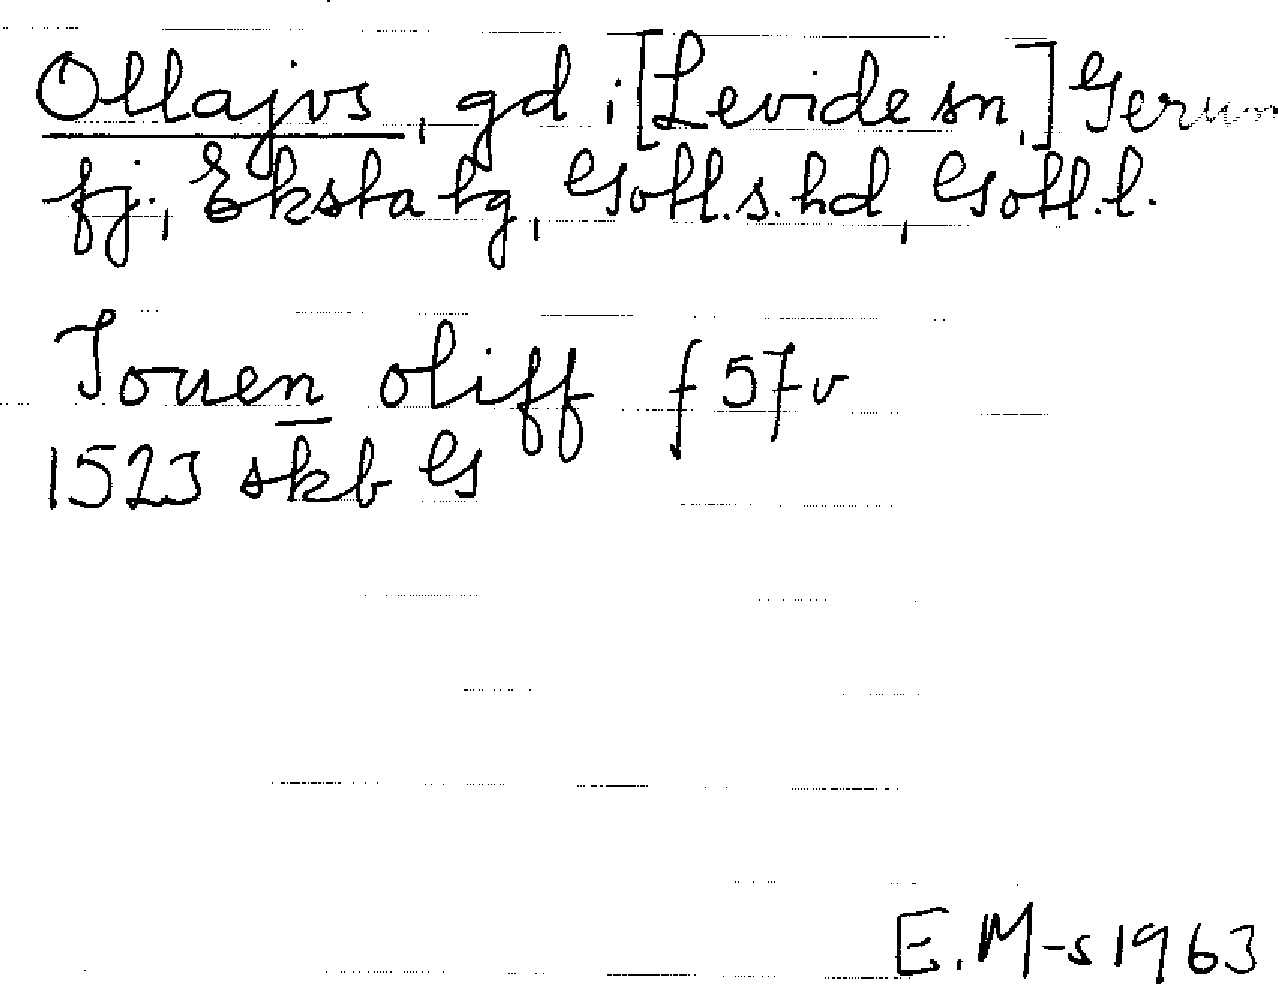 Ollajvs, gd i [Levide sn,] Gerum
fj., Eksta tg, Gotl. s. hd, Gotl. l.
Jouen oliff f 57 v
1523 skb G
E. M-s 1963